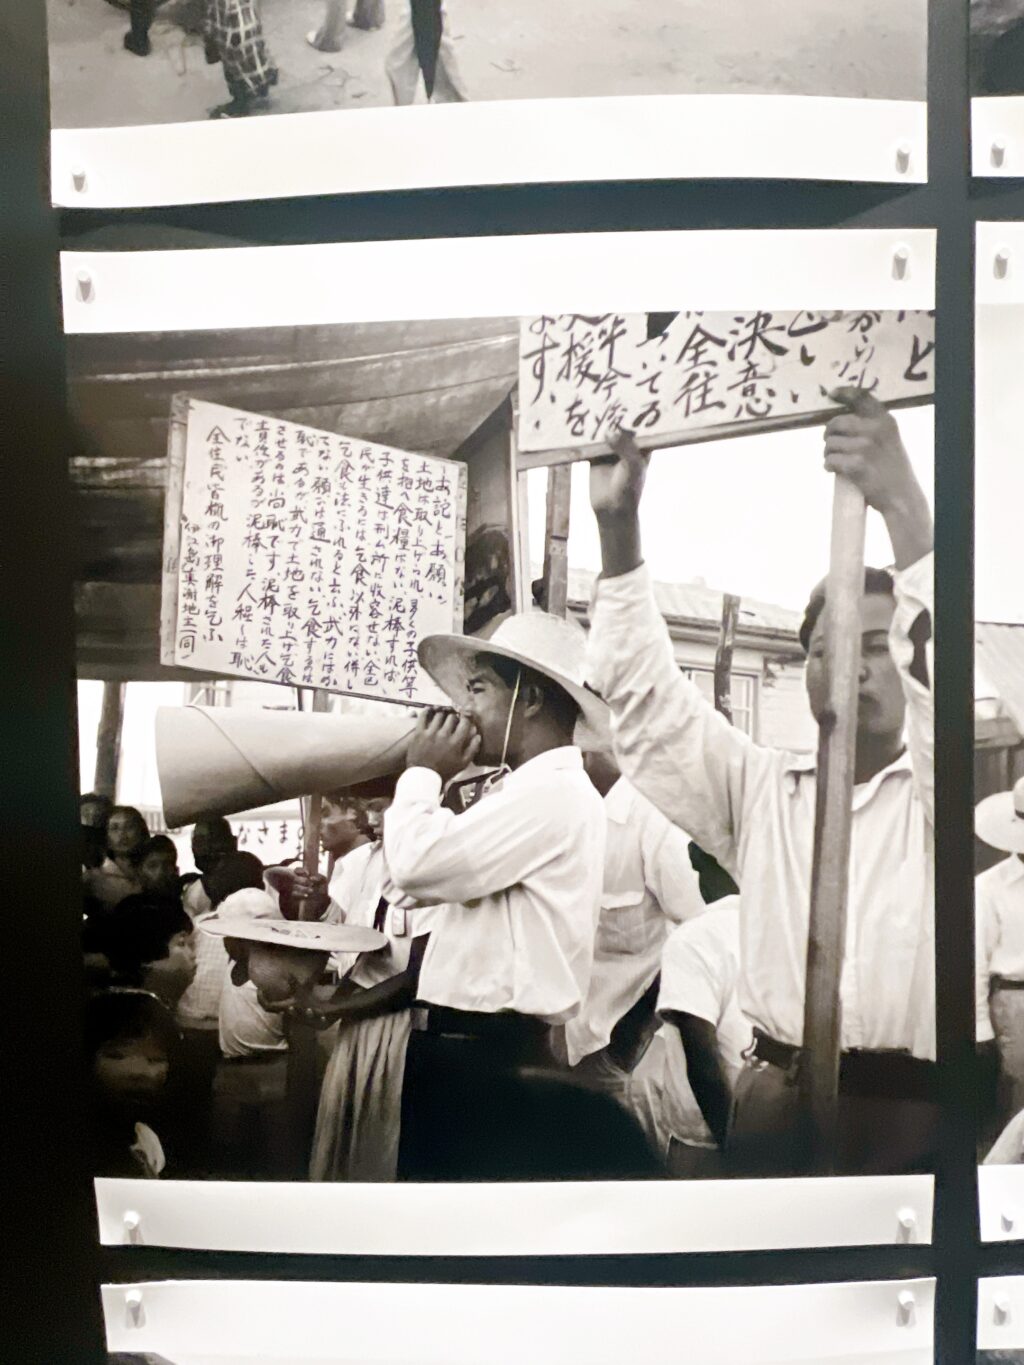 お願い
土地は取り上げられ多くの子供等
を抱へ食糧はない泥棒すれば
子供達は刑ム所に収容せない全
民が生きるには乞食以外にない併し
乞食も法にふれると云ふ武力にはか
てない願ひは通されない乞食するのは
恥であるが武力で土地を取り上げ乞食
させるのは尚恥です。泥棒された人も
責任があるが泥棒した人程には恥
でない
全住民皆様の御理解を乞ふ
伊江島真謝地主一同
と
から
決意
全住
ってお
今後
援を
ます。
なさまの